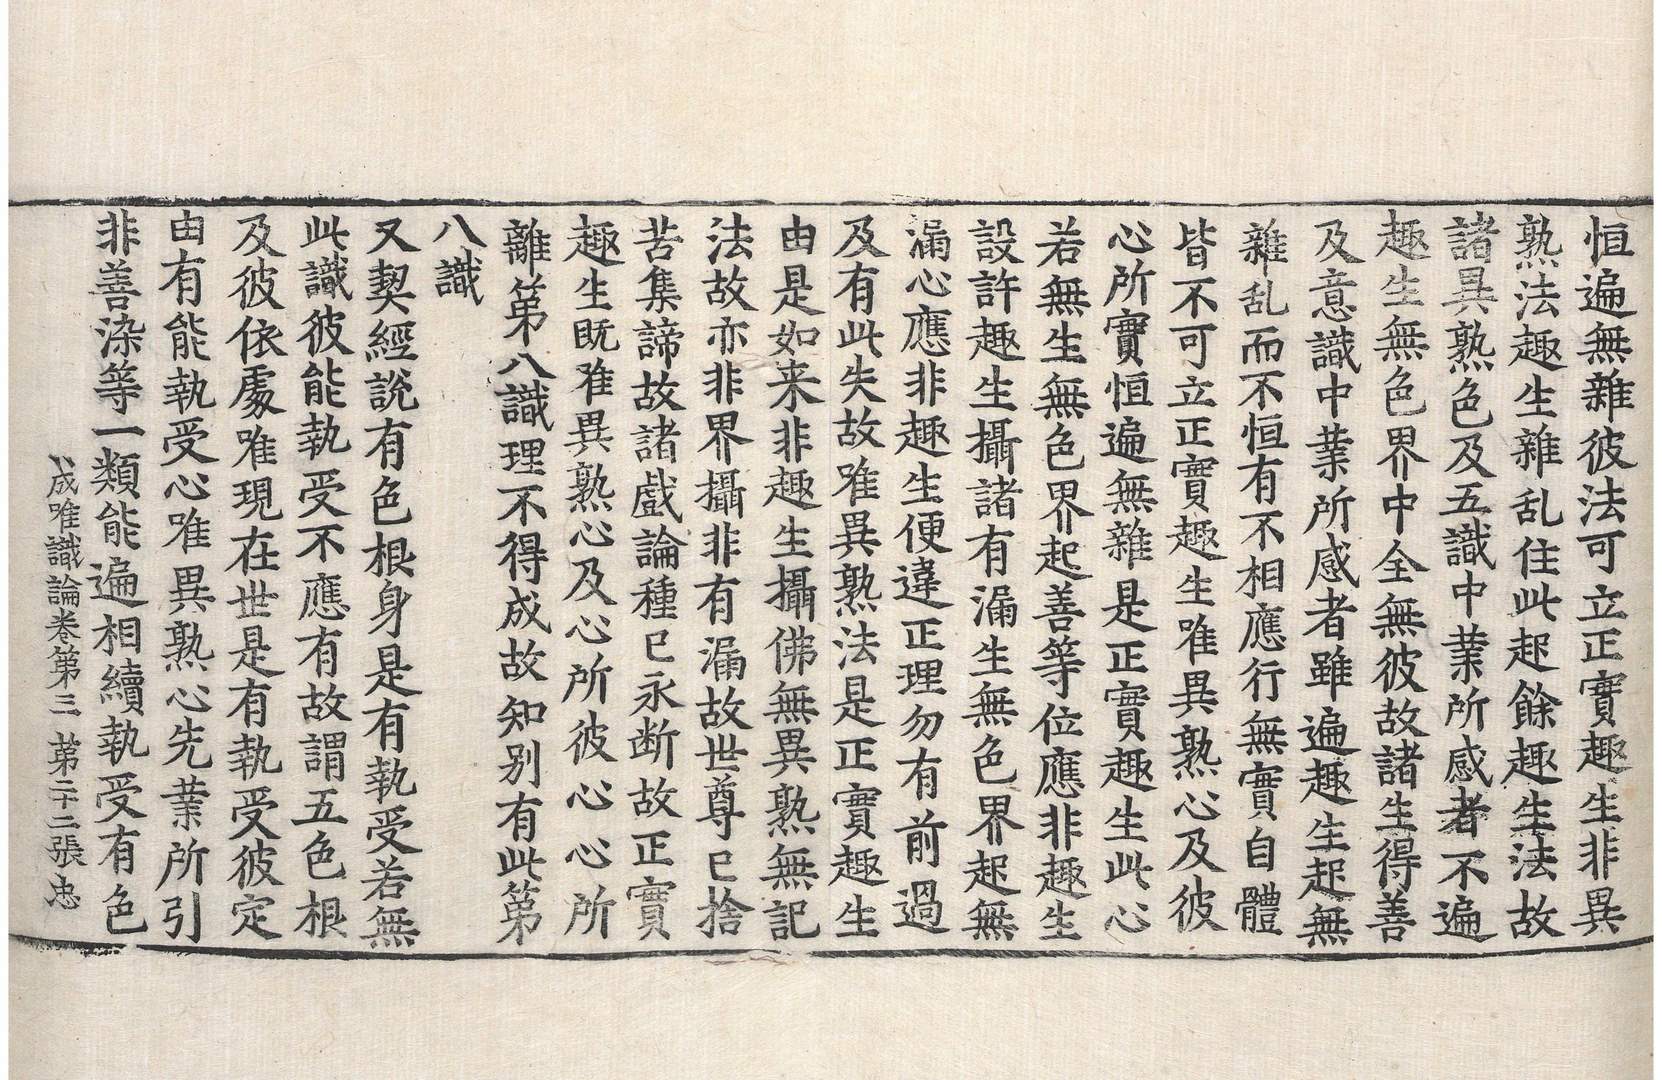 恒遍無雜彼法可立正實趣生非異
熟法趣生雜乱住此起餘趣生法故
諸異熟色及五識中業所感者不遍
趣生無色界中全無彼故諸生得善
及意識中業所感者雖遍趣生起無
雜乱而不恒有不相應行無實自體
皆不可立正實趣生唯異熟心及彼
心所實恒遍無雜是正實趣生此心
若無生無色界起善等位應非趣生
設許趣生攝諸有漏生無色界起無
漏心應非趣生便違正理勿有前過
及有此失故唯異熟法是正實趣生
由是如来非趣生攝佛無異熟無記
法故亦非界攝非有漏故世尊已捨
苦集諦故諸戲論種已永断故正實
趣生既唯異熟心及心所彼心心所
離第八識理不得成故知别有此第
八識
又契經說有色根身是有執受若無
此識彼能執受不應有故謂五色根
及彼依處唯現在世是有執受彼定
由有能執受心唯異熟心先業所引
非善染等一類能遍相續執受有色
成唯識論卷第三 第二十二張 忠